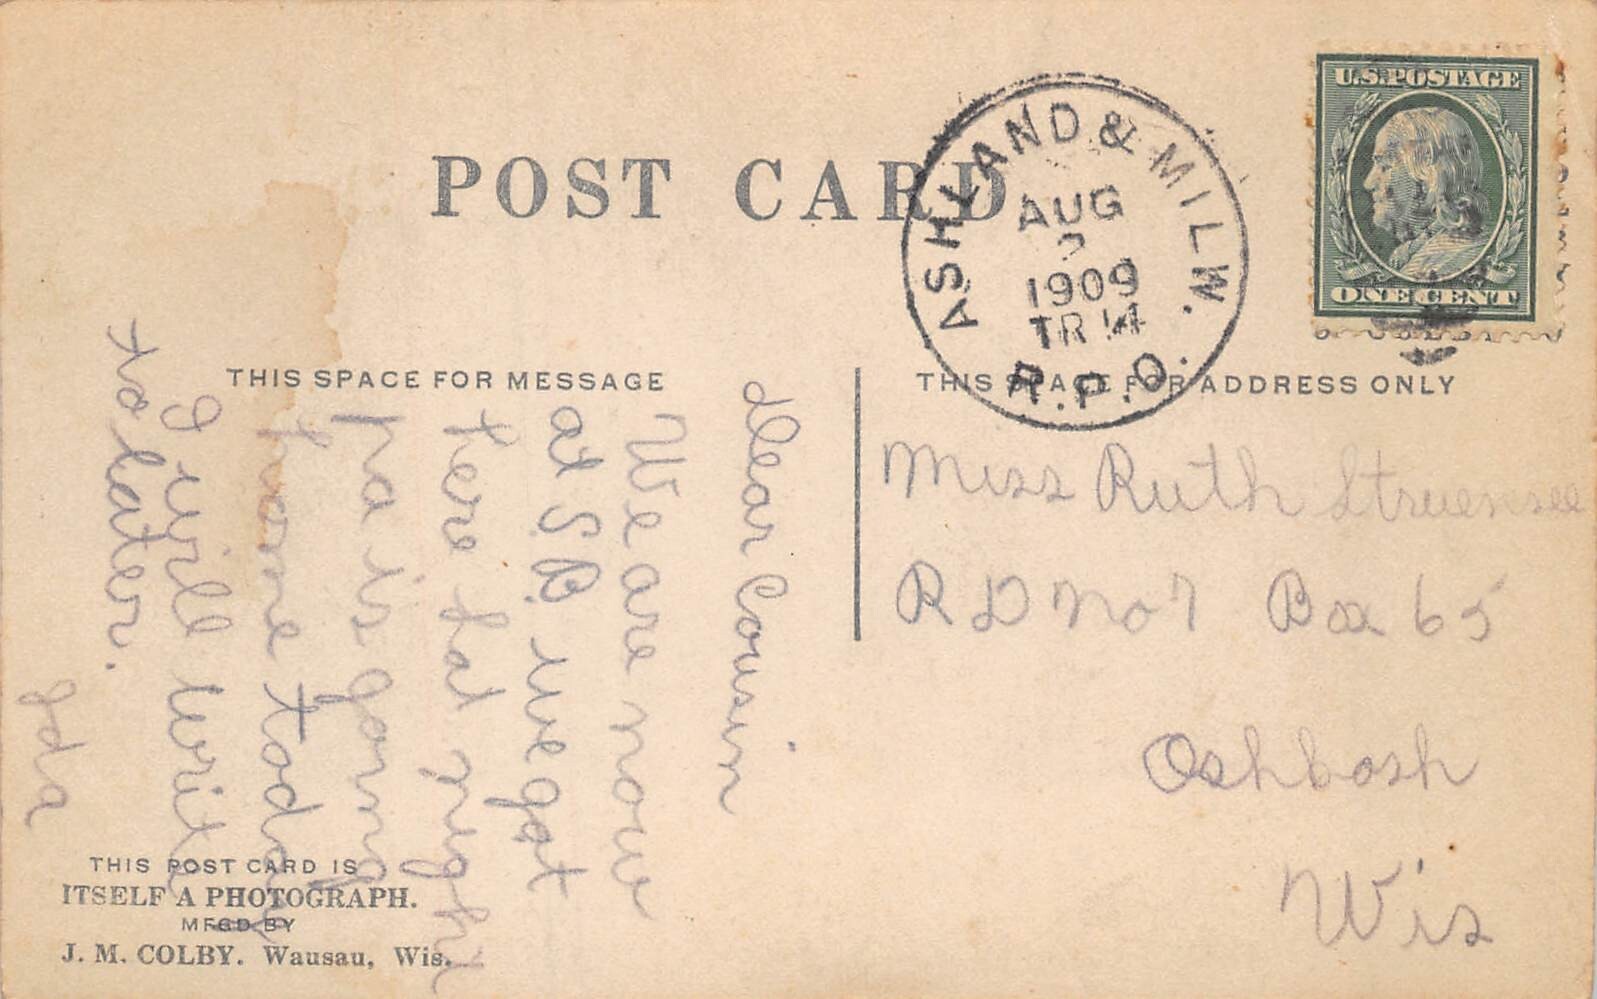 POST CARD
ASHLAND & MILW.
AUG
2
1909
TR 14
R.P.O.
U.S. POSTAGE
ONE CENT
THIS SPACE FOR MESSAGE
THIS SPACE FOR ADDRESS ONLY
Dear Cousin
We are now
at S.B. we got
here hat night
pa is going
home today
I will write
to later.
Ida
Miss Ruth Struensee
R D No 7 Box 65
Oshkosh
Wis
THIS POST CARD IS
ITSELF A PHOTOGRAPH.
MFGD BY
J. M. COLBY. Wausau, Wis.